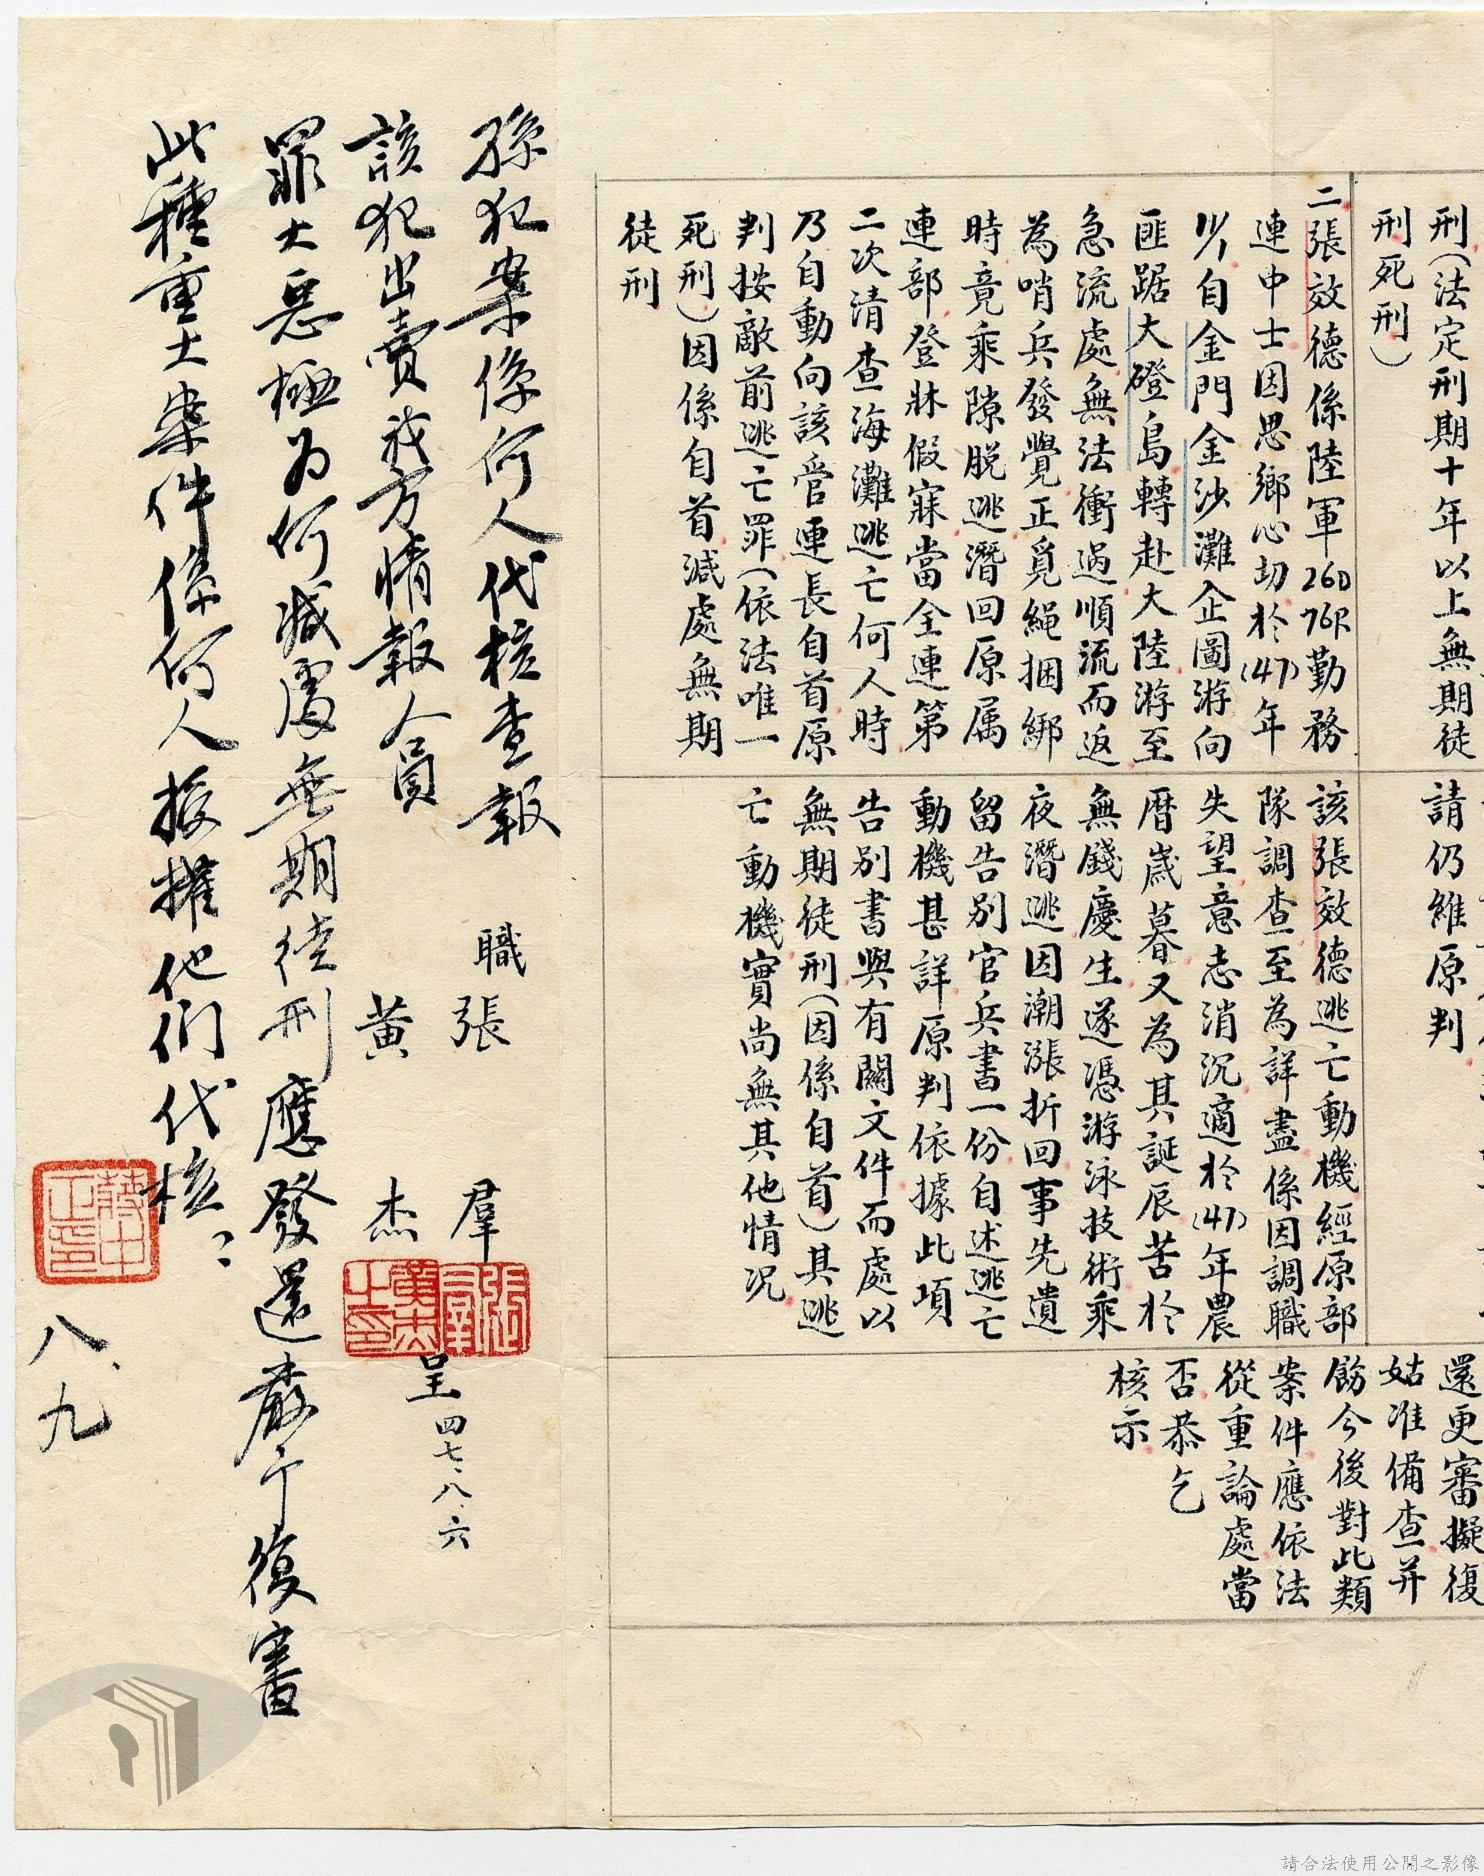 刑(法定刑期十年以上無期徒
刑死刑)
二張效德係陸軍26D76R勤務
連中士因思鄉心切於(47)年
自金門金沙灘企圖游向
匪踞大磴島轉赴大陸游至
急流處無法衝過順流而返
為哨兵發覺正覓繩捆綁
時竟乘隙脫逃潛回原属
連部登牀假寐當全連第
二次清查海灘逃亡何人時
乃自動向該管連長自首原
判按敵前逃亡罪(依法唯一
死刑)因係自首減處無期
徒刑
請仍維原判
該張效德逃亡動機經原部
隊調查至為詳盡係因調職
失望意志消沉適於(47)年農
曆歲暮又為其誕辰苦於
無錢慶生遂憑游泳技術乘
夜潛逃因潮漲折回事先遺
留告別官兵書一份自述逃亡
動機甚詳原判依據此項
告別書與有關文件而處以
無期徒刑(因係自首)其逃
亡動機實尚無其他情況
還更審擬復
姑准備查并
飭今後對此類
案件應依法
從重論處當
否恭乞
核示
職張羣
黃杰
呈四七、八、六
張羣
黃杰之印
孫犯案係何人代核查報
該犯出賣我方情報人員
罪大惡極為何減處無期徒刑應發還嚴予復審
此種重大案件係何人授權他們代核?
八、九
蔣中正印
請合法使用公開之影像